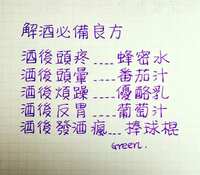 解酒必備良方
酒後頭疼....蜂蜜水
酒後頭暈....番茄汁
酒後煩躁....優酪乳
酒後反胃....葡萄汁
酒後發酒瘋...棒球棍
Green.